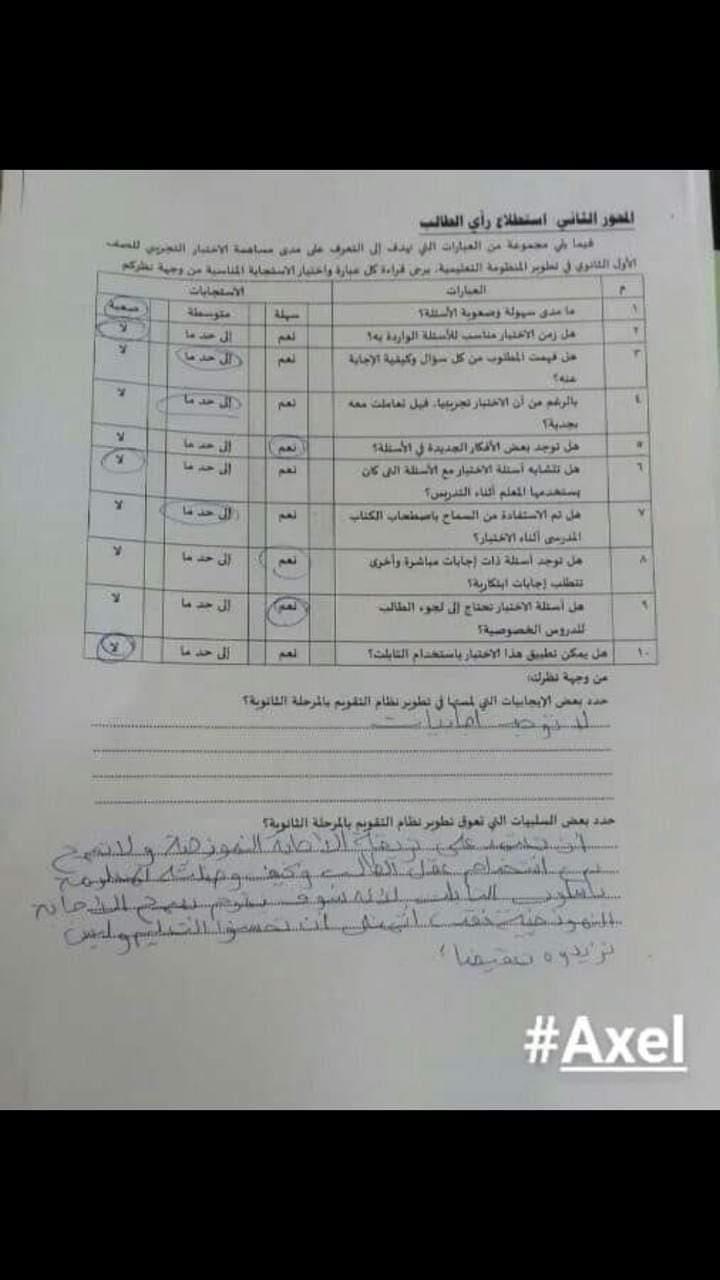 المحور الثاني استطلاع رأي الطالب
فيما يلي مجموعة من العبارات التي تهدف إلى التعرف على مدى مساهمة الاختبار التجريبي للصف
الأول الثانوي في تطوير المنظومة التعليمية، يرجى قراءة كل عبارة واختيار الاستجابة المناسبة من وجهة نظركم
م العبارات الاستجابات
١ ما مدى سهولة وصعوبة الأسئلة؟ سهلة متوسطة صعبة
٢ هل زمن الاختبار مناسب للأسئلة الواردة به؟ نعم إلى حد ما لا
٣ هل فهمت المطلوب من كل سؤال وكيفية الإجابة نعم إلى حد ما لا
عنه؟
٤ بالرغم من أن الاختبار تجريبيا، فهل تعاملت معه نعم إلى حد ما لا
بجدية؟
٥ هل توجد بعض الأفكار الجديدة في الأسئلة؟ نعم إلى حد ما لا
٦ هل تتشابه أسئلة الاختبار مع الأسئلة التى كان نعم إلى حد ما لا
يستخدمها المعلم أثناء التدريس؟
٧ هل تم الاستفادة من السماح باصطحاب الكتاب نعم إلى حد ما لا
المدرسى أثناء الاختبار؟
٨ هل توجد أسئلة ذات إجابات مباشرة وأخرى نعم إلى حد ما لا
تتطلب إجابات ابتكارية؟
٩ هل أسئلة الاختبار تحتاج إلى لجوء الطالب نعم إلى حد ما لا
للدروس الخصوصية؟
١٠ هل يمكن تطبيق هذا الاختبار باستخدام التابلت؟ نعم إلى حد ما لا
من وجهة نظرك:
حدد بعض الإيجابيات التي لمستها في تطوير نظام التقويم بالمرحلة الثانوية؟
لا توجد
حدد بعض السلبيات التي تعوق تطوير نظام التقويم بالمرحلة الثانوية؟
على الاجابة النموذجية ولا تسمح
عقل الطالب وكيف
سوف يقوم الاجابة
النموذجية فقط اتمنى ان تحسنوا التعليم وليس
تزيدوه
#Axel